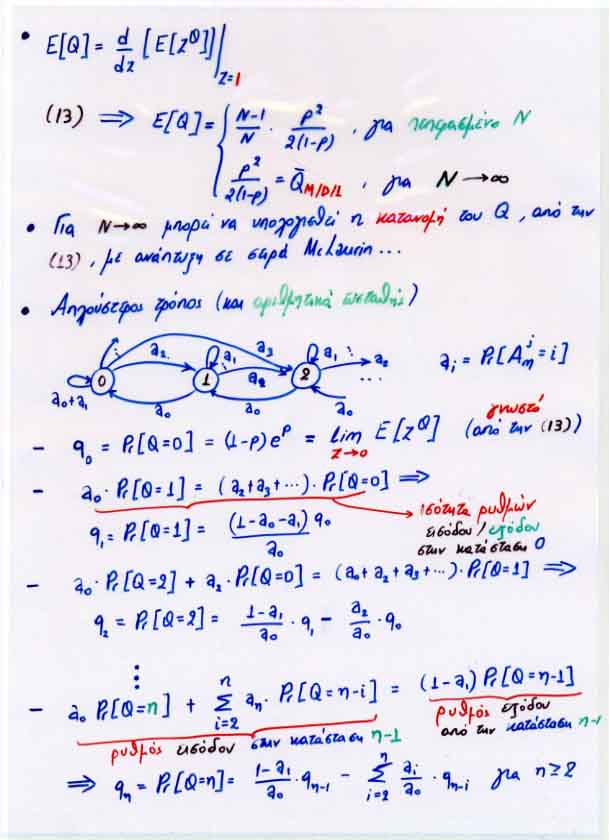 • E[Q] = d/dz [E[z^Q]] |_{z=1}
(13) ⟹ E[Q] = { N-1/N · ρ²/2(1-ρ) , για πεπερασμένο N
ρ²/2(1-ρ) = Q̄_{M/D/1} , για N→∞
• Για N→∞ μπορεί να υπολογισθεί η κατανομή του Q, από την
(13), με ανάπτυξη σε σειρά McLaurin...
• Απλούστερος τρόπος (και αριθμητικά ευσταθής)
a₀+a₁ 0 a₂ a₃ 1 a₁ a₂ 2 a₁ a₂ ... a₀ a₀ a₀ a_i = Pr[A_m^j = i]
- q₀ = Pr[Q=0] = (1-ρ)e^ρ = lim_{z→0} E[z^Q] γνωστό (από την (13))
- a₀·Pr[Q=1] = (a₂+a₃+···)·Pr[Q=0] ⟹
q₁ = Pr[Q=1] = (1-a₀-a₁)/a₀ q₀
ισότητα ρυθμών
εισόδου/εξόδου
στην κατάσταση 0
- a₀·Pr[Q=2] + a₂·Pr[Q=0] = (a₀+a₂+a₃+···)·Pr[Q=1] ⟹
q₂ = Pr[Q=2] = 1-a₁/a₀ · q₁ - a₂/a₀ · q₀
⋮
- a₀ Pr[Q=n] + Σ_{i=2}^{n} a_n · Pr[Q=n-i] = (1-a₁) Pr[Q=n-1]
ρυθμός εισόδου στην κατάσταση n-1
ρυθμός εξόδου
από την κατάσταση n-1
⟹ q_n = Pr[Q=n] = 1-a₁/a₀ · q_{n-1} - Σ_{i=2}^{n} a_i/a₀ · q_{n-i} για n≥2